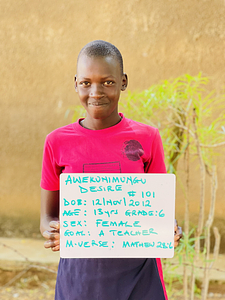 AWEKONIMUNGU
DESIRE # 101
DOB: 12/NOV/2012
AGE: 13yrs GRADE: 6
SEX: FEMALE
GOAL: A TEACHER
M-VERSE: MATHEW 28:6